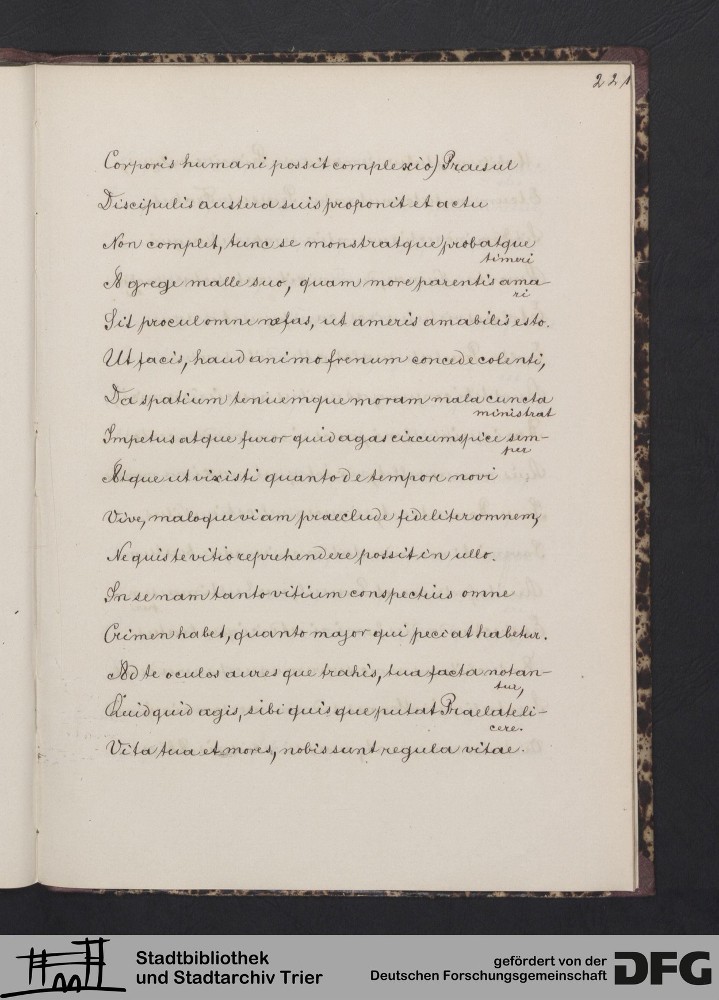 221
Corporis humani possit complexio) Praesul
Discipulis austera suis proponit et actu
Non complet, tunc se monstratque probatque
timeri
A grege malle suo, quam more parentis ama-
ri
Sit procul omne nefas, ut ameris amabilis esto.
Ut facis, haud animo frenum concede colenti,
Da spatium tenuemque moram mala cuncta
ministrat
Impetus atque furor quid agas circumspice sem-
per
Atque ut vixisti quanto de tempore novi
Vive, maloque viam praeclude fideliter omnem,
Ne quis te vitio reprehendere possit in ullo.
In se nam tanto vitium conspectius omne
Crimen habet, quanto major qui peccat habetur.
Ad te oculos auresque trahis, tua facta notan-
tur,
Quidquid agis, sibi quisque putat Praelate li-
cere.
Vita tua et mores, nobis sunt regula vitae.
Stadtbibliothek
und Stadtarchiv Trier
gefördert von der
Deutschen Forschungsgemeinschaft
DFG